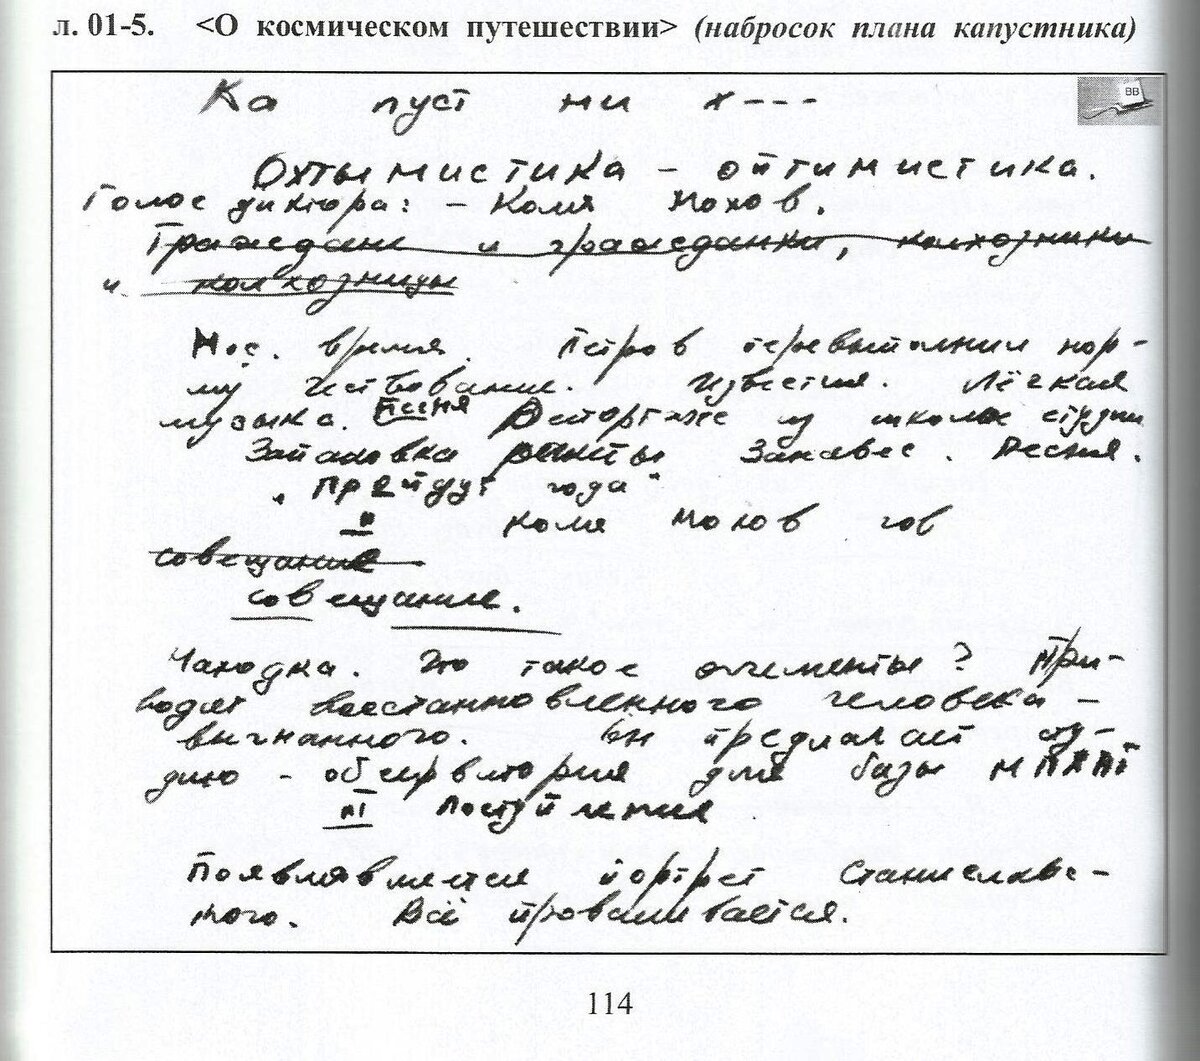 л. 01-5. <О космическом путешествии> (набросок плана капустника)
Ка пуст ни х---
ВВ
Охтымистика - оптимистика.
Голос диктора: - Коля Мохов.
Граждане и гражданки, колхозники
и колхозницы
Мос. время. Петров перевыполнил нор-
му чествование. Известия. Лёгкая
музыка. Песня Репортаж из школы студии
Запановка ракеты Занавес. Песня.
"Пройдут года"
II Коля Мохов гов
совещание
совещание.
Находка. Что такое элементы? При-
водят восстановленного человека -
выгнанного. Он предлагает сту-
дию - обсерватория для базы МПХАТ
III Поступления
Появлявляется портрет Станиславс-
кого. Всё проваливается.
114